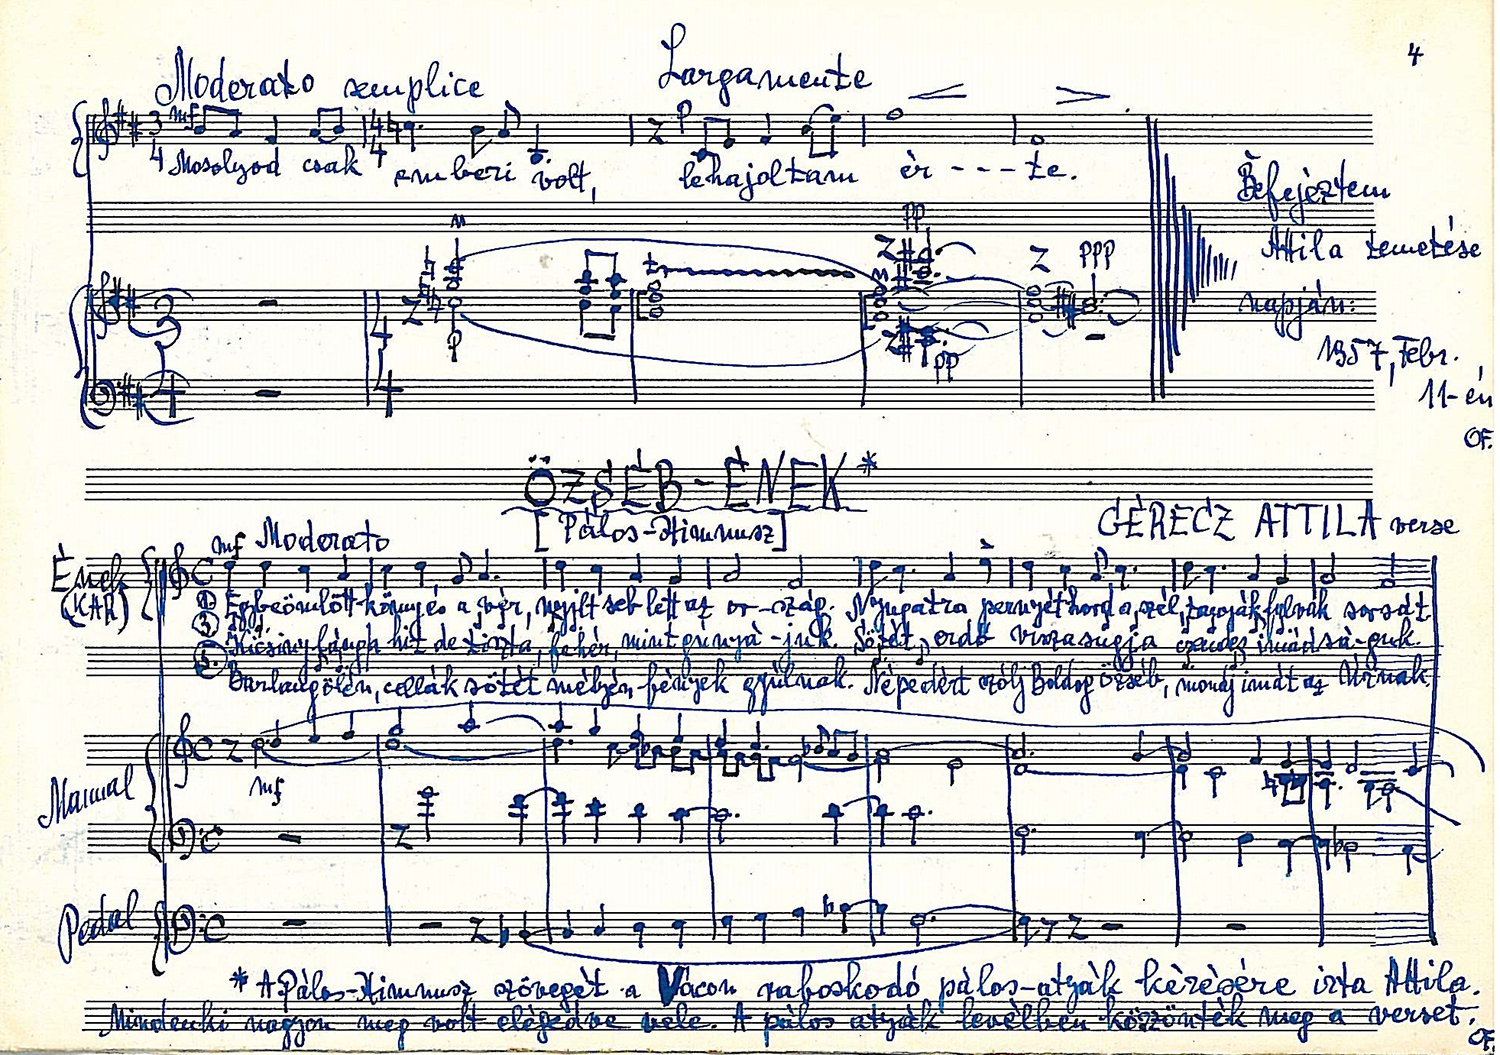 4
Moderato semplice
Largamente
mf
p
Mosolyod csak emberi volt, lehajoltam ér---te.
pp
ppp
pp
Befejeztem
Attila temetése
napján:
1957, Febr.
11-én
OF.
ÖZSÉB-ÉNEK*
[Pálos-Himnusz]
GÉRECZ ATTILA verse
mf Moderato
Ének
(KAR)
① Egybeömlött könny és a vér, nyílt seb lett az or-szág. Nyugatra pernyét hord a szél,
③ Kicsiny lángja hit de tiszta, fehér, mint gunyá-juk. Sötét erdő visszasúgja csendes imádsá-guk.
⑤ Barlang ölén, cellák sötét mélyén fények gyúlnak. Népedért szólj Boldog Özséb, mondj imát az Úrnak.
Manual
mf
Pedal
* A Pálos-Himnusz szövegét a Vácon raboskodó pálos-atyák kérésére írta Attila.
Mindenki nagyon meg volt elégedve vele. A pálos atyák levélben köszönték meg a verset.
OF.